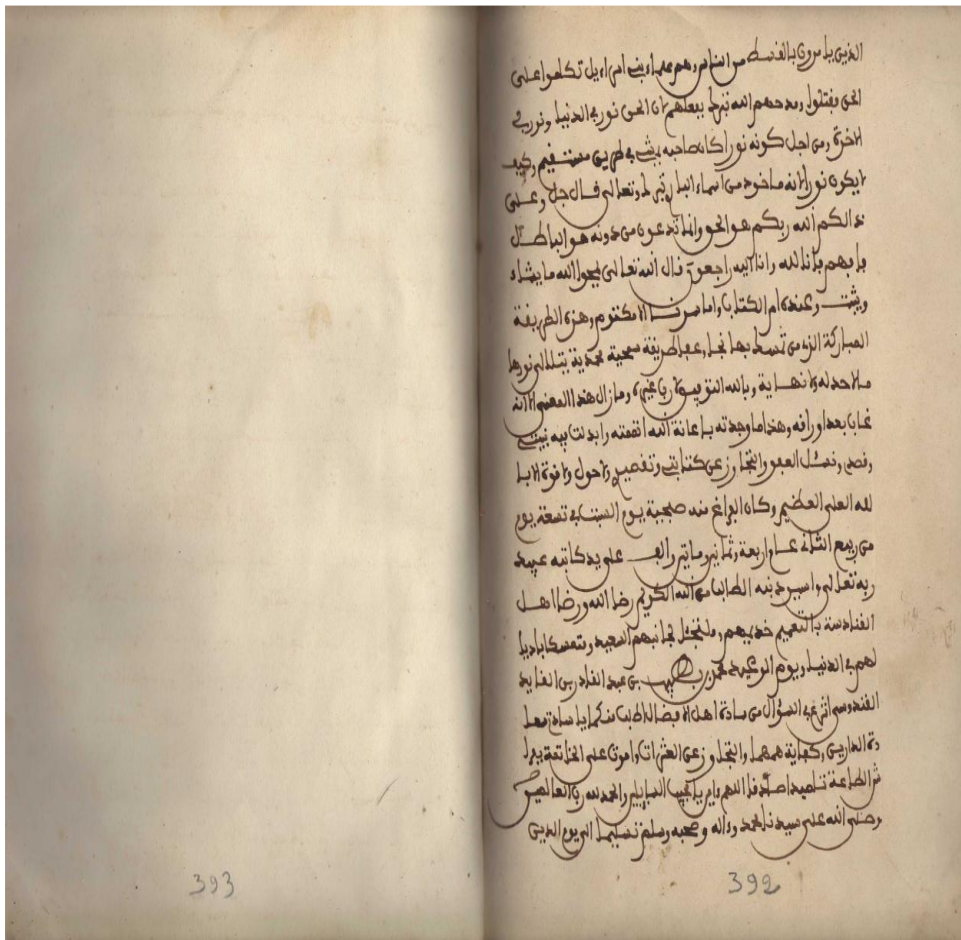 الذين يامرون بالقسط من الناس وهم علماء بني اسراءيل تكلموا على
الحق فقتلوا ومدحهم الله تبرك بفعلهم لان الحق نور في الدنيا ونور في
الاخرة ومن اجل كونه نورا كان صاحبه يمشي في طريق مستقيم وكيف
لا يكون نورا لانه ماخوذ من اسماء البار تبرك وتعالى فال جل وعلى
ذالكم الله ربكم هو الحق وانما تدعون من دونه هو الباطل
بانا لله وانا اليه راجعون فال الله تعالى يمحوا الله ما يشاء
ويثبت وعنده ام الكتاب واما مكتوم وهذه الطريفة
المباركة الذي من تمسك بها نجا طريفة محمدية نورها
ما لا حد له ولا نهاية وبالله التوفيق لا رب غيره وما زال هذا المعنى الا انه
بعد اورافه وهذا ما وجدته باعانة الله اتممته
وفصدي ونسئل العفو والتجاوز عن كتابتي وتفصير ولا حول ولا قوة الا با
لله العلي العظيم وكان الفراغ منه صبيحة يوم السبت في تسعة يوم
من ربيع الثاني عام اربعة وثمانين وماتين والف على يد كاتبه عبيد
ربه تعالى واسير ذنبه الطالب من الله الكريم رضا الله ورضا اهل
الفنادسة بالتعميم خديمهم السعيد ومتمسكا باذيا
لهم في الدنيا ويوم الوعيد محمد بن بن عبد الفادر بن الفايد
الفندوسي السؤال من سادة اهل الطلب منكم يا ساداتي سعا
دة الدارين وكفاية همهما والتجاوز عن العثرات وامون على الخاتمة
الطاعة اللهم ءامين يا مجيب السايلين والحمد لله رب العالمين
وصلى الله على سيدنا محمد وءاله وصحبه وسلم تسليما الى يوم الدين
392
393